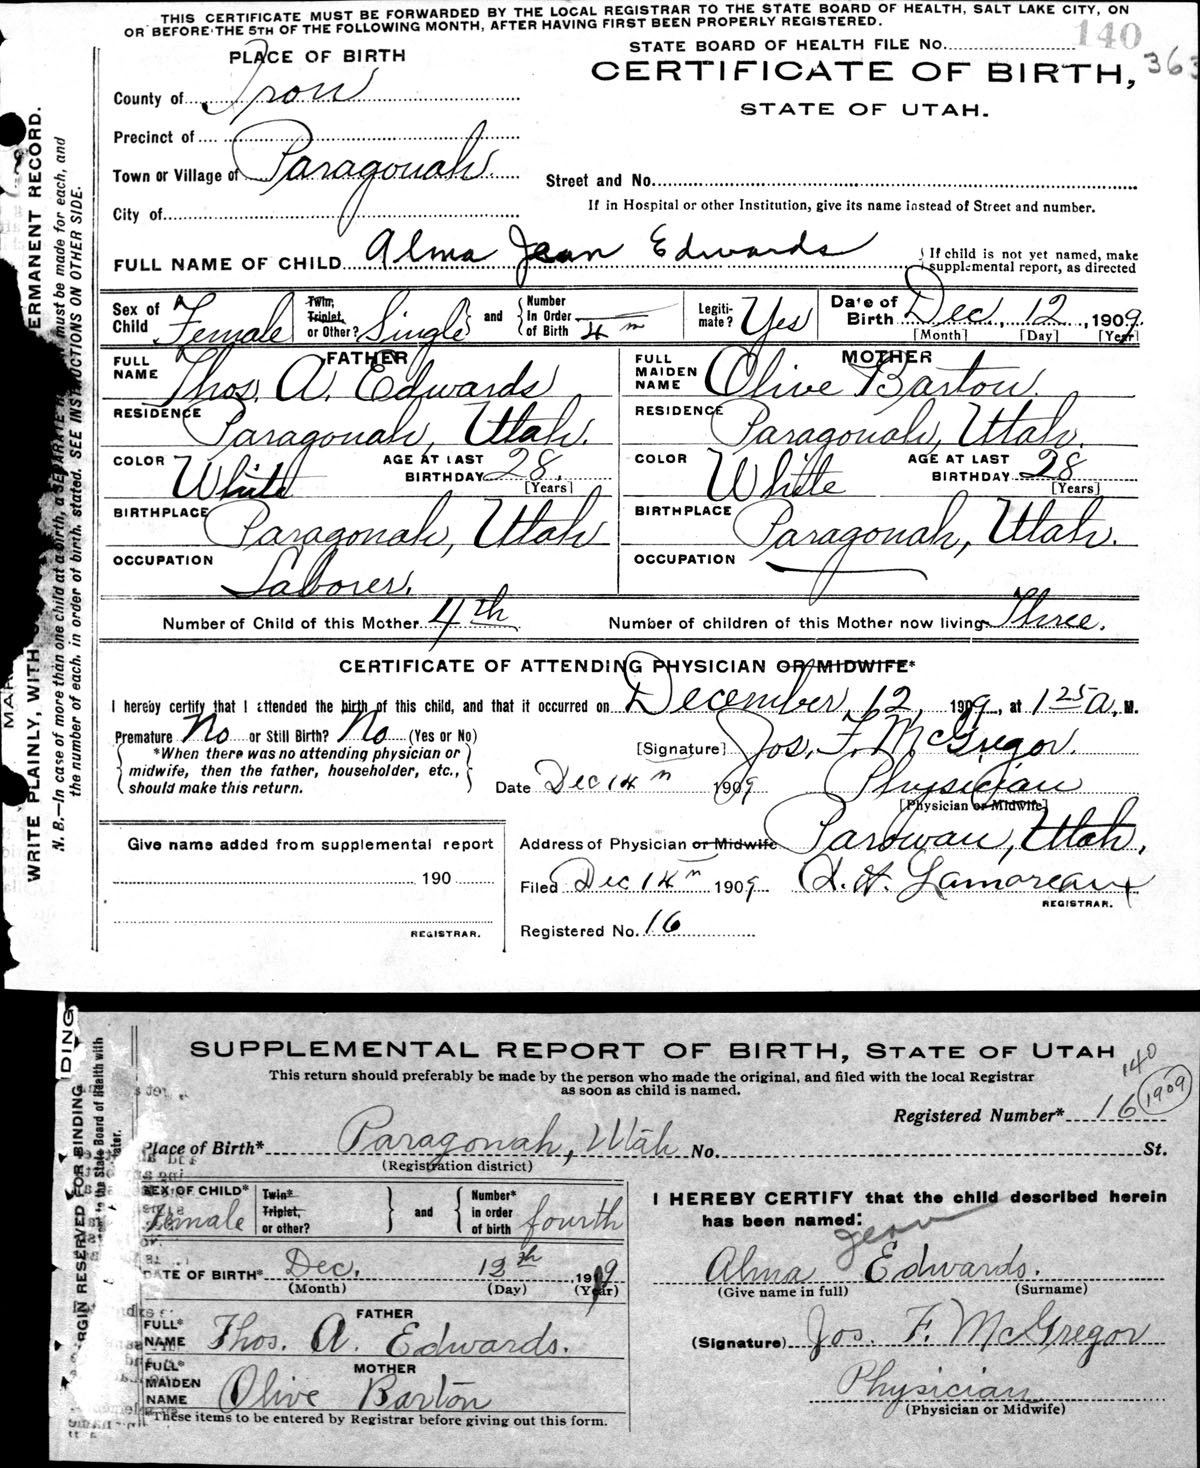 THIS CERTIFICATE MUST BE FORWARDED BY THE LOCAL REGISTRAR TO THE STATE BOARD OF HEALTH, SALT LAKE CITY, ON
OR BEFORE THE 5TH OF THE FOLLOWING MONTH, AFTER HAVING FIRST BEEN PROPERLY REGISTERED.
PLACE OF BIRTH
STATE BOARD OF HEALTH FILE No. 140
363
CERTIFICATE OF BIRTH,
STATE OF UTAH.
County of Iron
Precinct of
Town or Village of Paragonah
Street and No.
If in Hospital or other Institution, give its name instead of Street and number.
City of
FULL NAME OF CHILD Alma Jean Edwards
If child is not yet named, make supplemental report, as directed
Sex of Child Female
Twin, Triplet, or Other? Single
and
Number In Order of Birth 4th
Legitimate? Yes
Date of Birth Dec, 12, 1909.
[Month] [Day] [Year]
FATHER
FULL NAME Thos. A. Edwards
RESIDENCE Paragonah, Utah.
COLOR White
AGE AT LAST BIRTHDAY 28,
[Years]
BIRTHPLACE Paragonah, Utah
OCCUPATION Laborer.
MOTHER
FULL MAIDEN NAME Olive Barton.
RESIDENCE Paragonah, Utah.
COLOR White
AGE AT LAST BIRTHDAY 28
[Years]
BIRTHPLACE Paragonah, Utah.
OCCUPATION
Number of Child of this Mother 4th
Number of children of this Mother now living Three.
CERTIFICATE OF ATTENDING PHYSICIAN OR MIDWIFE*
I hereby certify that I attended the birth of this child, and that it occurred on December, 12, 1909, at 1 25 a, M.
Premature No or Still Birth? No (Yes or No)
*When there was no attending physician or midwife, then the father, householder, etc., should make this return.
[Signature] Jos. F. McGregor.
Date Dec 14th 1909
Physician
[Physician or Midwife]
Address of Physician or Midwife Parowan, Utah.
Filed Dec 14th 1909
Registered No. 16
REGISTRAR.
Give name added from supplemental report
190
REGISTRAR.
WRITE PLAINLY, WITH
PERMANENT RECORD.
N. B.—In case of more than one child at a birth, a SEPARATE must be made for each, and
the number of each, in order of birth, stated. SEE INSTRUCTIONS ON OTHER SIDE.
SUPPLEMENTAL REPORT OF BIRTH, STATE OF UTAH
140
This return should preferably be made by the person who made the original, and filed with the local Registrar
as soon as child is named.
Registered Number* 16 1909
Place of Birth* Paragonah, Utah No. St.
(Registration district)
SEX OF CHILD* Female
Twin* Triplet, or other?
and
Number* in order of birth fourth
DATE OF BIRTH* Dec. 12th 1909
(Month) (Day) (Year)
FATHER
FULL* NAME Thos. A. Edwards.
MOTHER
FULL* MAIDEN NAME Olive Barton
*These items to be entered by Registrar before giving out this form.
I HEREBY CERTIFY that the child described herein
has been named:
Jean
Alma Edwards.
(Give name in full) (Surname)
(Signature) Jos. F. McGregor
Physician
(Physician or Midwife)
MARGIN RESERVED FOR BINDING
the State Board of Health with